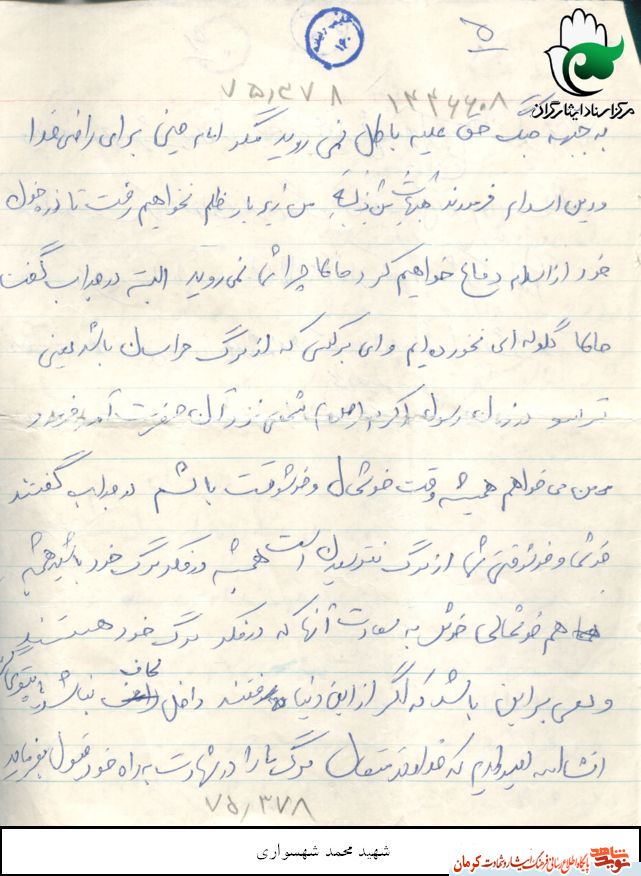 ۵
۷۵٫۳۷۸
۱۳۴۶۶۰۸
مرکز اسناد ایثارگران
به جبهه جنگ حق علیه باطل نمی روید مگر امام حسین برای راضی خدا
و دین اسلام فرمودند هیهات من الذله من زیر بار ظلم نخواهیم رفت تا ذره خون
خود از اسلام دفاع خواهیم کرد حالا چرا شما نمی روید البته در جواب گفت
حالا گلوله ای نخورده ایم و ای بر کسی که از مرگ هراسان باشد یعنی
ترسو در زمان رسول اکرم (ص) شخصی نزد آن حضرت آمد فرمود
من می خواهم همیشه وقت خوشحال و خوشوقت باشم در جواب گفتند
خوشحا و خوشوقتی شما از مرگ نترسیدن است همیشه در فکر مرگ خود باشید همیشه
هم خوشحالی خوش به سعادت آنها که در فکر مرگ خود هستند
و سعی بر این باشد که اگر از این دنیا رفتند داخل لحاف نباشد
انشاالله امیدواریم که خداوند متعال مرگ ما را در شهادت به راه خود قبول بفرماید
۷۵٫۳۷۸
شهید محمد شهسواری
نوید شاهد
پایگاه اطلاع رسانی فرهنگ ایثار و شهادت کرمان